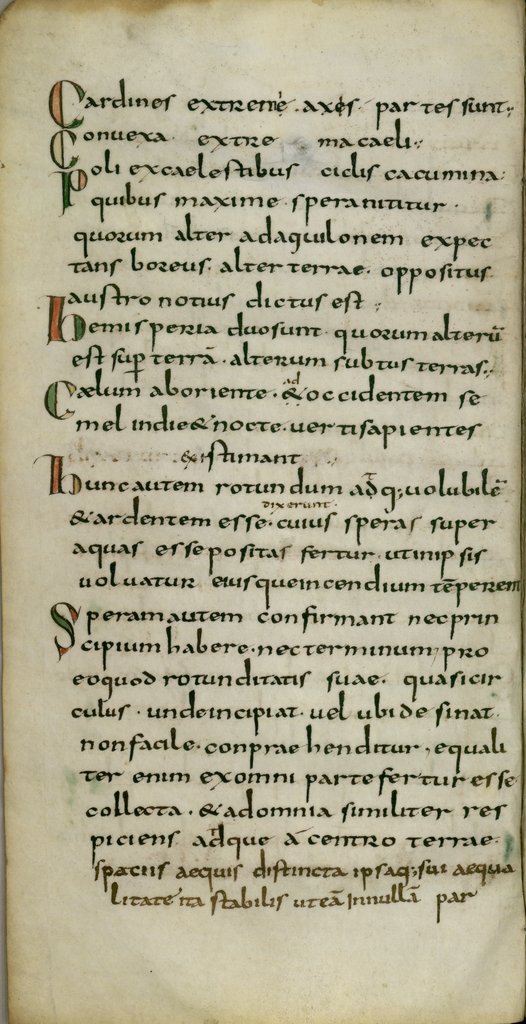 Cardines extreme axes partes sunt.
Convexa extre ma caeli.
Poli ex caelestibus ciclis cacumina
quibus maxime spera nititur.
quorum alter ad aquilonem expec
tans boreus. alter terrae. oppositus
austro notius dictus est
hemisperia duo sunt quorum alterū
est suꝑ terrā. alterum subtus terras.
Caelum ab oriente. ad & occidentem se
mel in die & nocte. verti sapientes
existimant
hunc autem rotundum adq; volubilē
& ardentem esse. dixerunt. cuius speras super
aquas esse positas fertur. ut in ipsis
volvatur eiusque incendium tēperent
Speram autem confirmant nec prin
cipium habere. nec terminum, pro
eo quod rotunditatis suae. quasi cir
culus. unde incipiat. vel ubi desinat.
non facile. conpraehenditur, equali
ter enim ex omni parte fertur esse
collecta. & ad omnia similiter res
piciens adque a centro terrae.
spatiis aequis distincta ipsaq; sui aequa
litate ita stabilis ut eā in nullā par